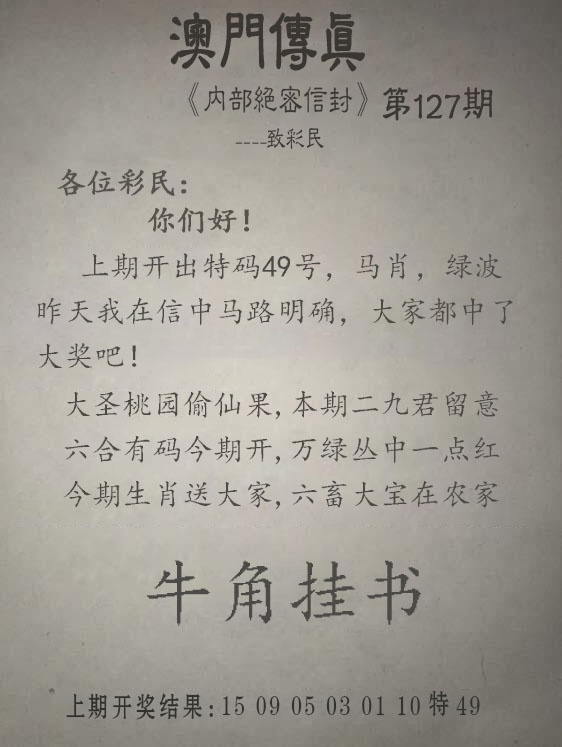 澳門傳真
《内部絕密信封》第127期
----致彩民
各位彩民:
你们好!
上期开出特码49号，马肖，绿波
昨天我在信中马路明确，大家都中了
大奖吧!
大圣桃园偷仙果,本期二九君留意
六合有码今期开,万绿丛中一点红
今期生肖送大家,六畜大宝在农家
牛角挂书
上期开奖结果:15 09 05 03 01 10 特 49